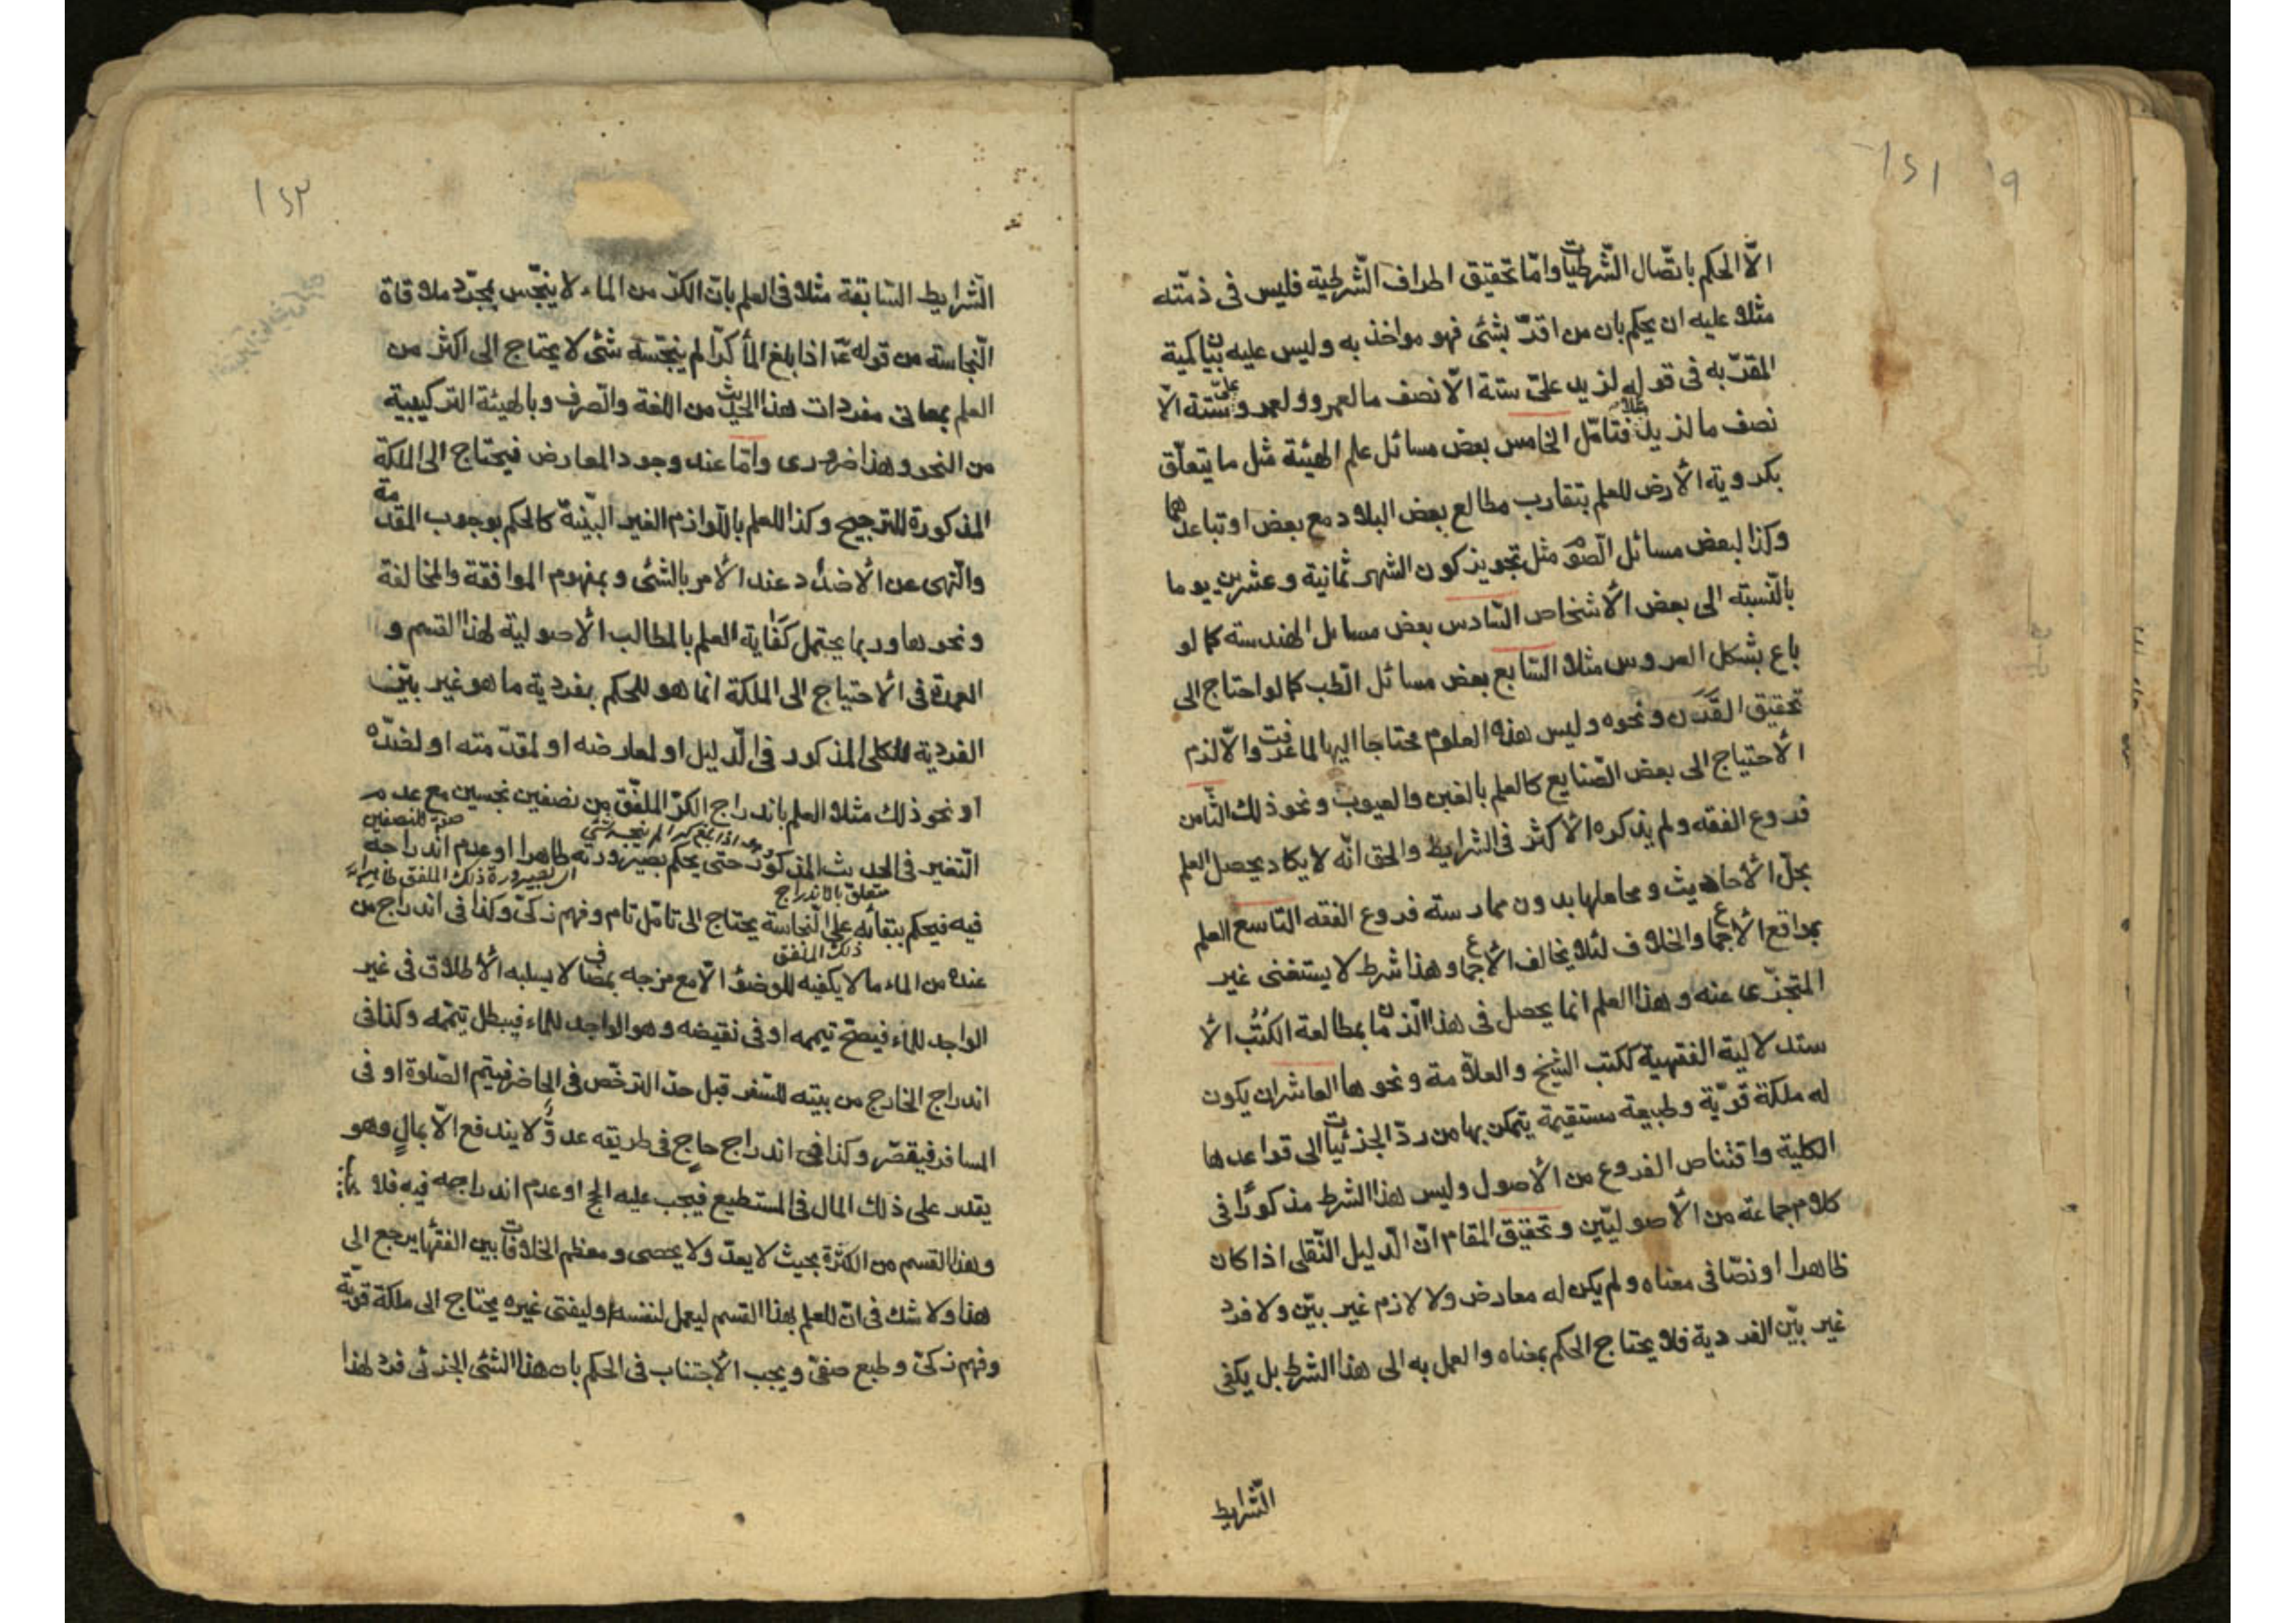 ١٢١ ٩
الّا الحكم باتّصال الشّرطيّات وامّا تحقيق اطراف الشّرطية فليس فى ذمّته
مثلا عليه ان يحكم بان من اقرّ بشئ فهو مواخذ به وليس عليه بيان كمية
المقرّ به فى قوله لزيد علىّ ستة الّا نصف ما لعمرو ولعمرو علىّ ستة الّا
نصف ما لزيد مثلا فتامّل الخامس بعض مسائل علم الهيئة مثل ما يتعلّق
بكروية الأرض للعلم بتقارب مطالع بعض البلاد مع بعض او تباعدهما
وكذا لبعض مسائل الصّوم مثل تجويز كون الشهر ثمانية وعشرين يوما
بالنّسبة الى بعض الأشخاص السّادس بعض مسائل الهندسة كما لو
باع بشكل العروس مثلا السّابع بعض مسائل الطّب كما لو احتاج الى
تحقيق القَرَن ونحوه وليس هذه العلوم محتاجا اليها لما عرفت والّا لزم
الأحتياج الى بعض الصّنايع كالعلم بالغبن والعيوب ونحو ذلك الثّامن
فروع الفقه ولم يذكره الأكثر فى الشرايط والحق انّه لا يكاد يحصل العلم
بحلّ الأحاديث ومحاملها بدون ممارسة فروع الفقه التاسع العلم
بمواقع الأجماع والخلاف لئلا يخالف الأجماع وهذا شرط لا يستغنى غير
المتجزّى عنه وهذا العلم انما يحصل فى هذا الزّمان بمطالعة الكُتُب الأ
ستدلالية الفقهية ككتب الشيخ والعلّامة ونحوها العاشر ان يكون
له ملكة قوّية وطبيعة مستقيمة يتمكن بها من ردّ الجزئيّات الى قواعدها
الكلية واقتناص الفروع من الأصول وليس هذا الشرط مذكورًا فى
كلام جماعة من الأصوليّين وتحقيق المقام انّ الّدليل النّقلى اذا كان
ظاهرا او نصّا فى معناه ولم يكن له معارض ولا لازم غير بيّن ولا فرد
غير بيّن الفردية فلا يحتاج الحكم بمعناه والعمل به الى هذا الشرط بل يكفى
الشّرايط
١٢٢
الشّرايط السّابقة مثلا فى العلم بان الكرّ من الماء لا ينجّس بمجرّد ملاقاة
النّجاسة من قوله ع اذا بلغ المأ كرّا لم ينجّسه شئ لا يحتاج الى اكثر من
العلم بمعانى مفردات هذا الحديث من اللغة والصّرف وبالهيئة التركيبية
من النحو وهذا ضرورى وامّا عند وجود المعارض فيحتاج الى الملكة
المذكورة للترجيح وكذا للعلم باللّوازم الغير البيّنة كالحكم بوجوب المقدّمة
والنّهى عن الأضداد عند الأمر بالشئ وبمفهوم الموافقة والمخالفة
ونحوها وربما يحتمل كفاية العلم بالمطالب الأصولية لهذا القسم و
العمدة فى الأحتياج الى الملكة انما هو للحكم بفردية ما هو غير بيّن
الفردية للكلى المذكور فى الّدليل او لمعارضه او لمقدّمته او لضدّه
او نحو ذلك مثلا العلم باندراج الكرّ الملفّق من نصفين نجسين مع عدم
صفة للنصفين
وهو اذا بلغ كرا لم ينجسه شئ
التّغير فى الحديث المذكور حتى يحكم بصيرورته طاهرا او عدم اندراجه
اى بصيرورة ذلك الملفق طاهرا
متعلق بالاندراج
فيه فيحكم ببقائه على النّجاسة يحتاج الى تامّل تام وفهم زكىّ وكذا فى اندراج من
ذلك الملفق
عنده من الماء ما لا يكفيه للوضؤ الّا مع مزجه بمضاف لا يسلبه الأطلاق فى غير
الواجد للماء فيصحّ تيممه او فى نقيضه وهو الواجد للماء فيبطل تيمّمه وكذا فى
اندراج الخارج من بيته للسّفر قبل حدّ الترخّص فى الحاضر فيتم الصّلوة او فى
المسافر فيقصّر وكذا فى اندراج حاج فى طريقه عدوٌّ لا يندفع الّا بمالٍ وهو
يقدر على ذلك المال فى المستطيع فيجب عليه الحج او عدم اندراجه فيه فلا
وهذا القسم من الكثرة بحيث لا يعدّ ولا يحصى ومعظم الخلافات بين الفقهأ يرجع الى
هذا ولا شك فى انّ العلم بهذا القسم ليعمل لنفسه او ليفتى غيره يحتاج الى ملكة قويّة
وفهم زكىّ وطبع صفىّ ويجب الأجتناب فى الحكم بان هذا الشئ الجزئى فرد لهذا